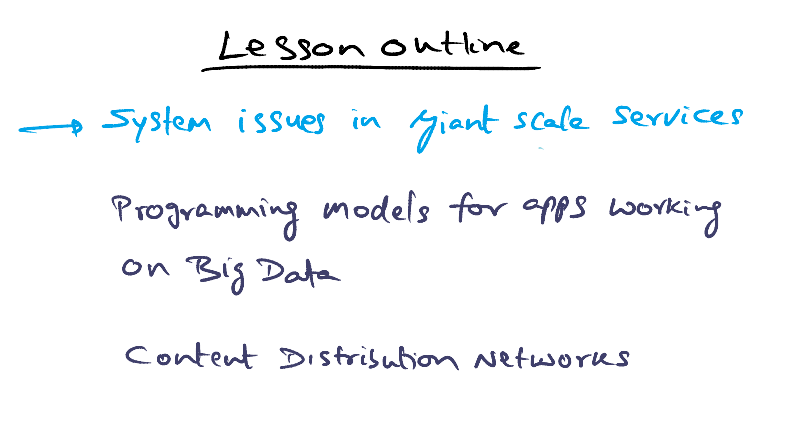 Lesson outline
→ System issues in giant scale services
Programming models for apps working
on Big Data
Content Distribution Networks